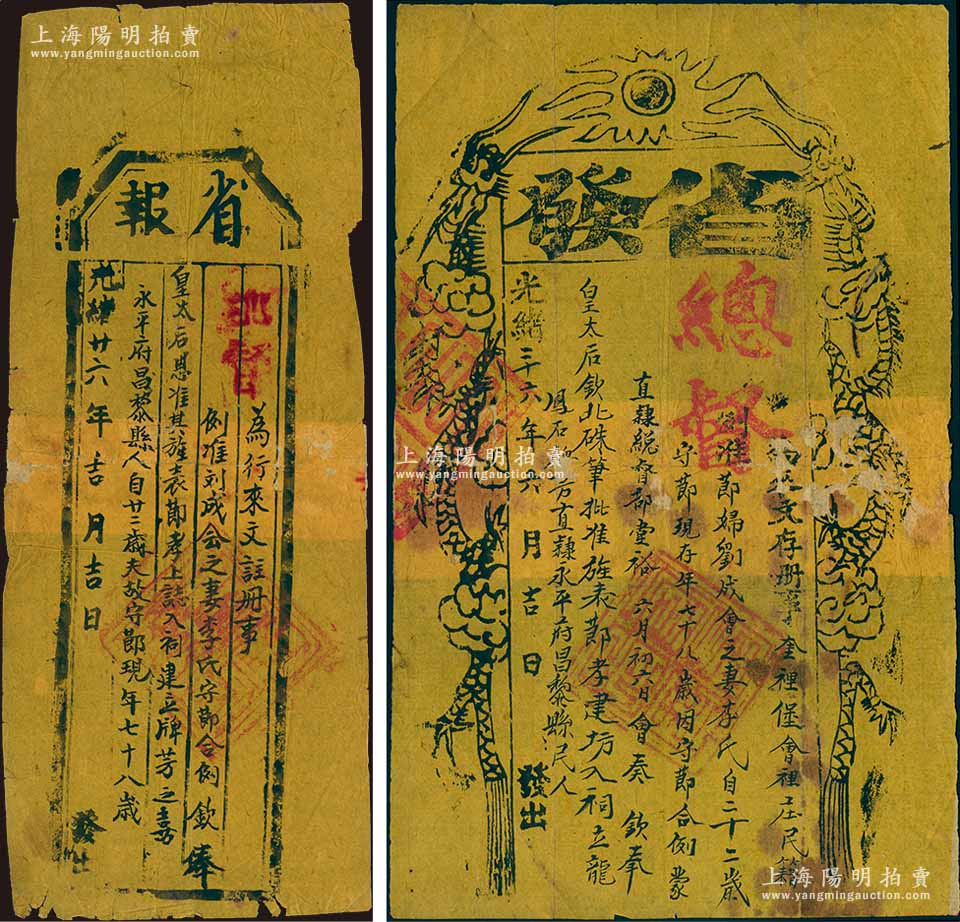 上海陽明拍賣
www.yangmingauction.com
省報
總督
為行來文註册事
例准刘成会之妻李氏守節合例欽奉
皇太后恩准其旌表節孝上誌入祠建立牌芳之嘉
永平府昌黎縣人自廿二歲夫故守節現年七十八歲
光緒廿六年吉月吉日
發出
上海陽明拍賣
www.yangmingauction.com
省發
總督
文存册事奎裡堡會裡庄民
例准節婦劉成會之妻李氏自二十二歲
守節現存年七十八歲因守節合例蒙
直隸總督部堂裕六月初六日會奏欽奉
皇太后欽北硃筆批准旌表節孝建坊入祠立龍
鳳石
直隸永平府昌黎縣民人
光緒二十六年六月吉日
發出
上海陽明拍賣
www.yangmingauction.com
上海陽明拍賣
www.yangmingauction.com